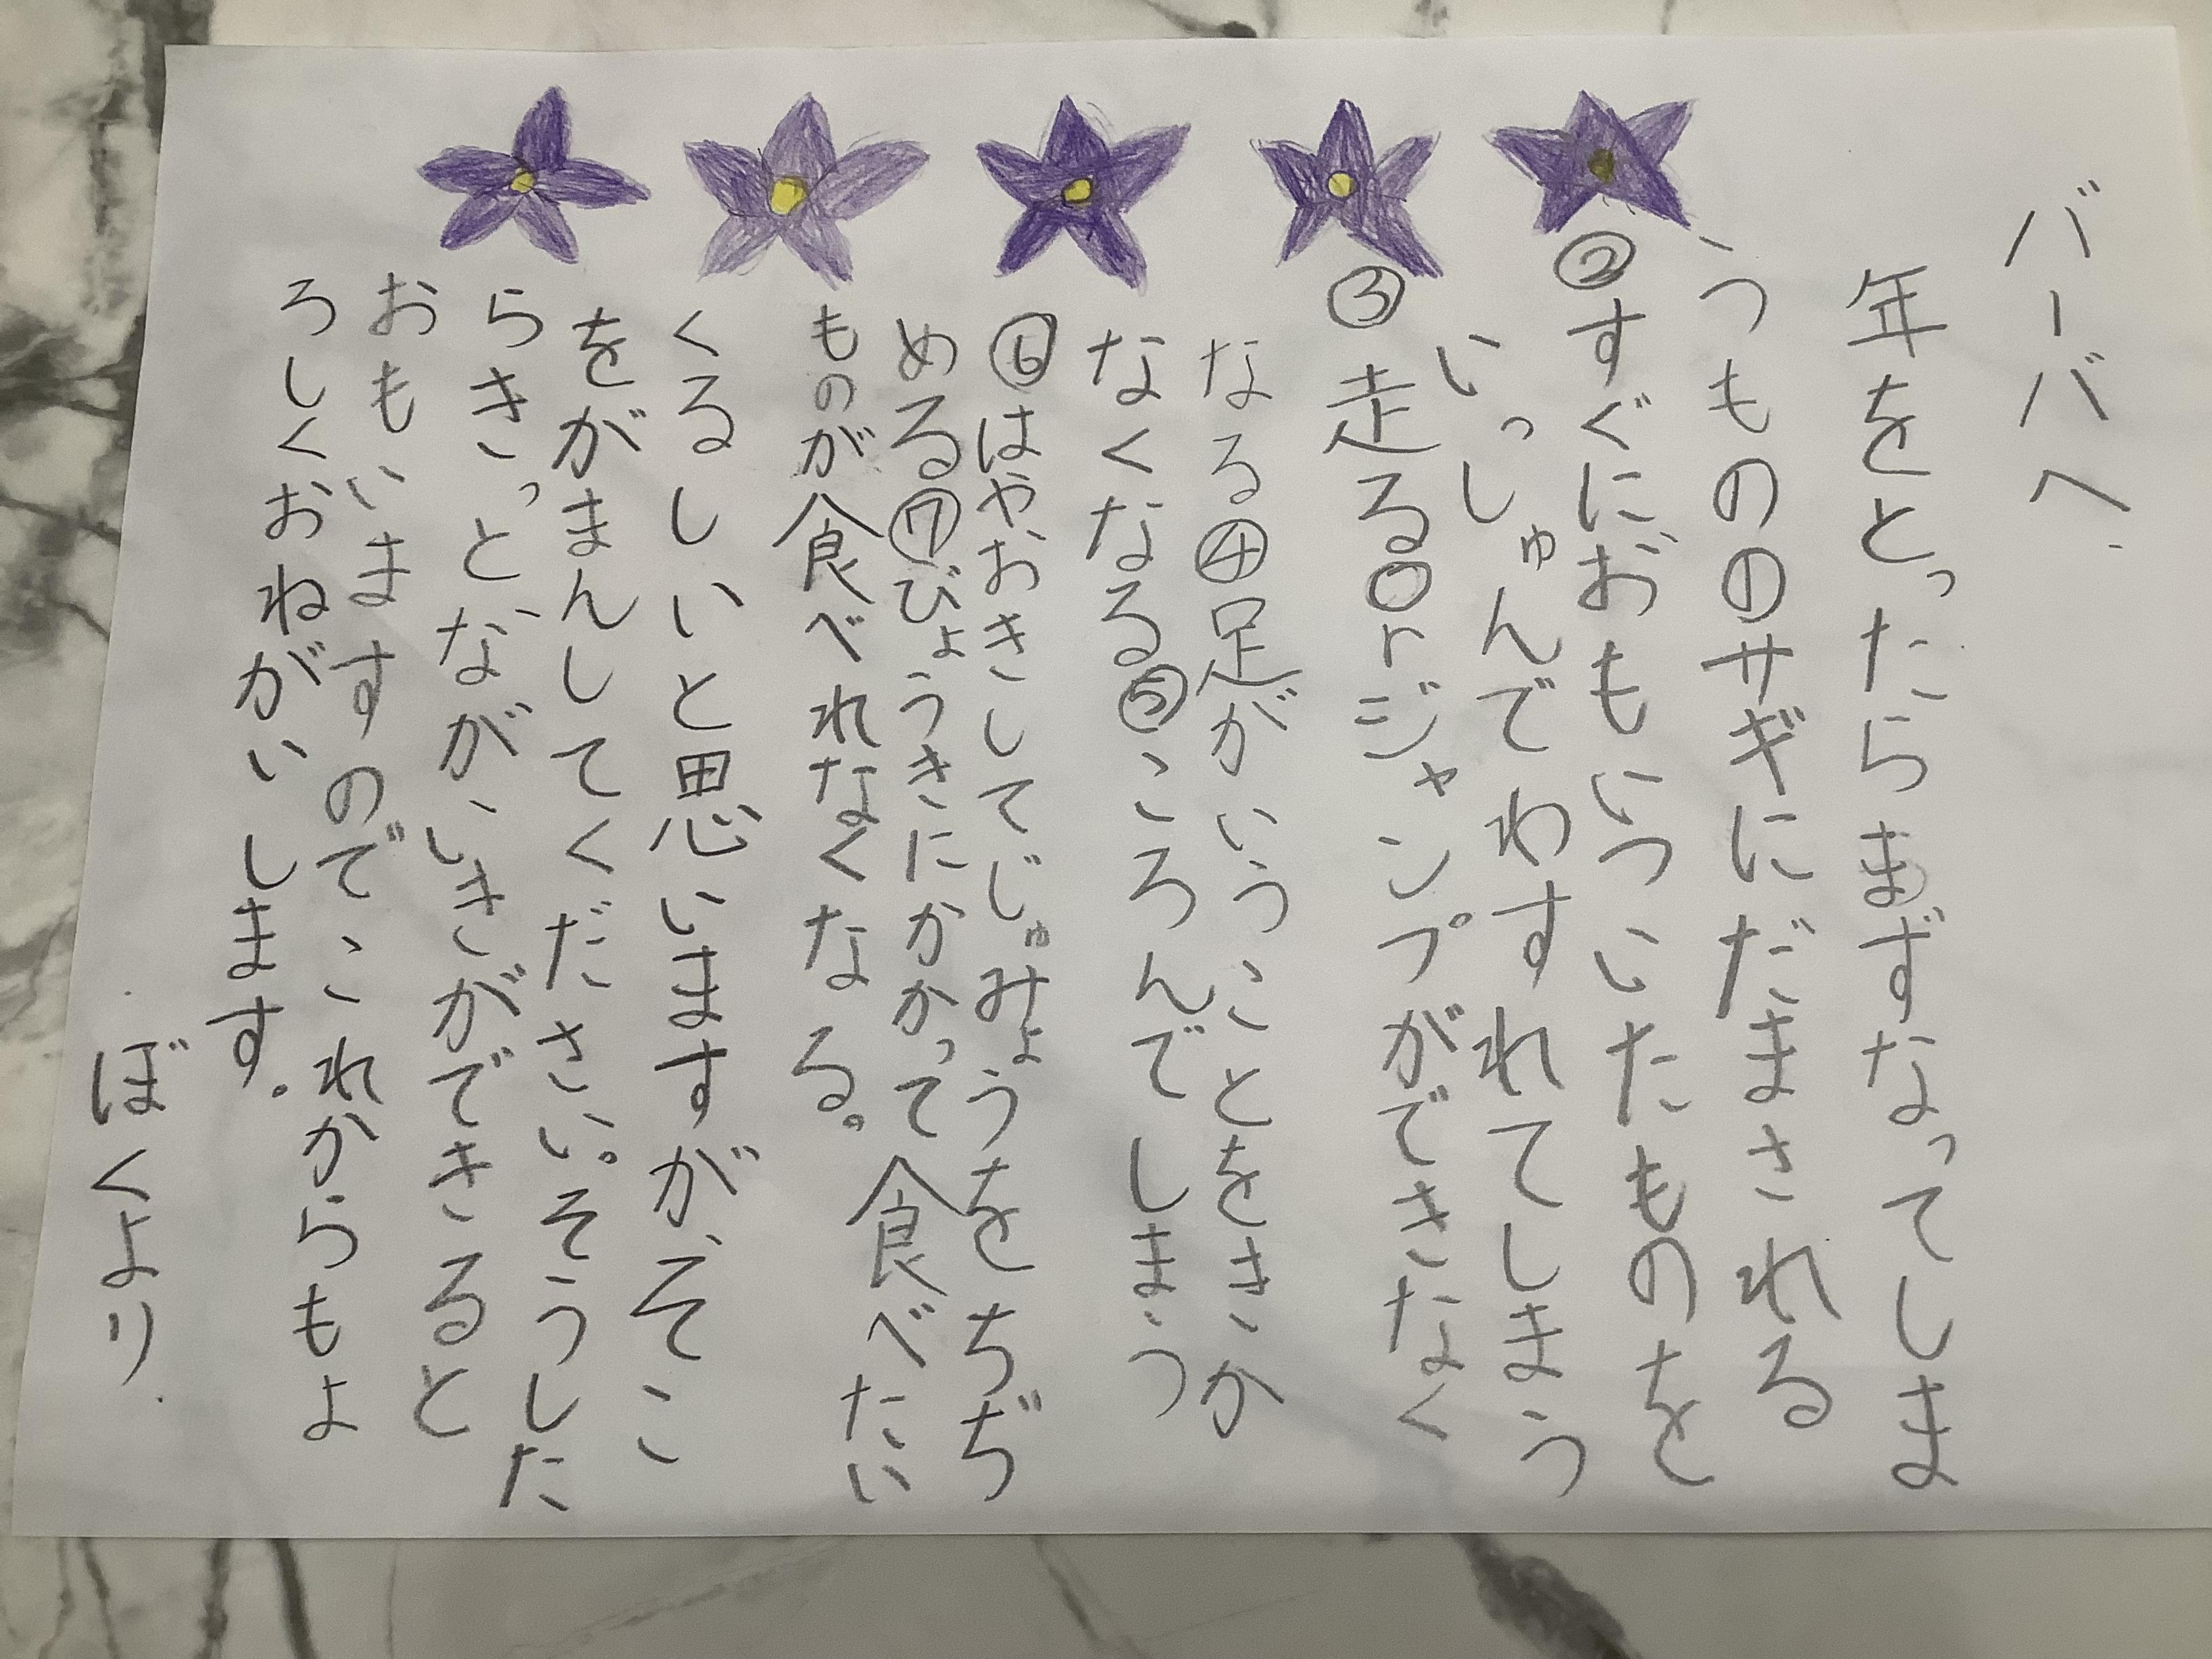 バーバへ
年をとったらまずなってしま
うものの①サギにだまされる
②すぐにおもいついたものを
いっしゅんでわすれてしまう
③走るorジャンプができなく
なる④足がいうことをきか
なくなる⑤ころんでしまう
⑥はやおきしてじゅみょうをちぢ
める⑦びょうきにかかって食べたい
ものが食べれなくなる。
くるしいと思いますが、そこ
をがまんしてください。そうした
らきっと、ながいきができると
おもいますのでこれからもよ
ろしくおねがいします。
ぼくより